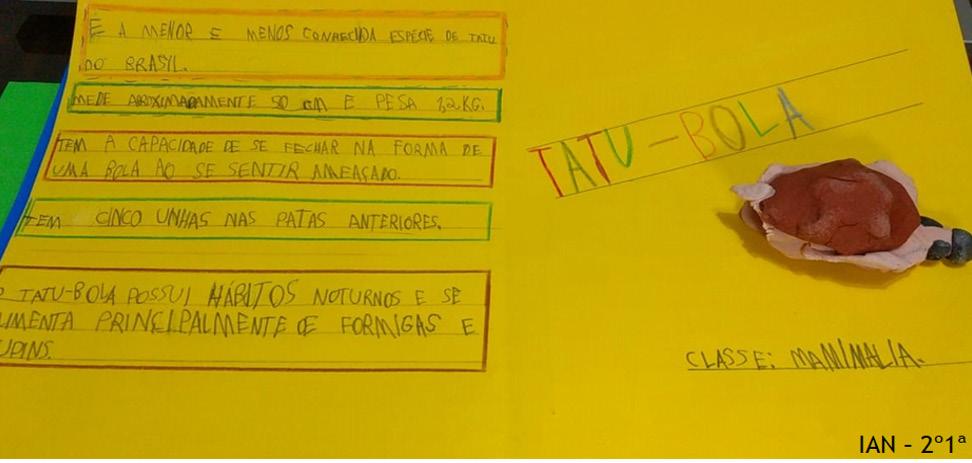 É A MENOR E MENOS CONHECIDA ESPÉCIE DE TATU
DO BRASIL.
MEDE APROXIMADAMENTE 50 cm E PESA 1,2 KG.
TEM A CAPACIDADE DE SE FECHAR NA FORMA DE
UMA BOLA AO SE SENTIR AMEAÇADO.
TEM CINCO UNHAS NAS PATAS ANTERIORES.
O TATU-BOLA POSSUI HÁBITOS NOTURNOS E SE
LIMENTA PRINCIPALMENTE DE FORMIGAS E
UPINS.
TATU-BOLA
CLASSE: MAMMALIA.
IAN – 2º1ª